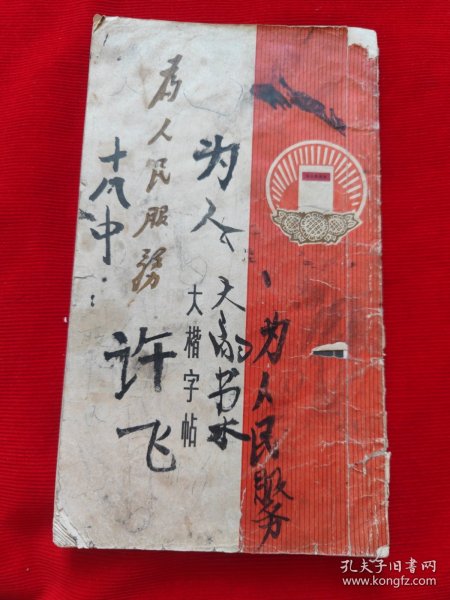 为人民服務
十八中
为人
大楷字帖
许飞
为人民服务
孔夫子旧书网
www.kongfz.com